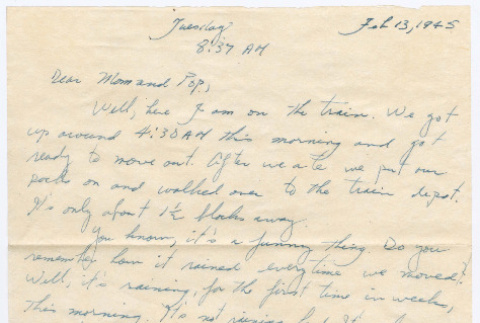 Tuesday Feb 13, 1945
8:37 AM
Dear Mom and Pop,
Well, here I am on the train. We got
up around 4:30 AM this morning and got
ready to move out. After we ate we put our
packs on and walked over to the train depot.
It's only about 1½ blocks away.
You know, it's a funny thing Do you
remember how it rained everytime we moved?
Well, it's raining, for the first time in weeks,
this morning. It's not